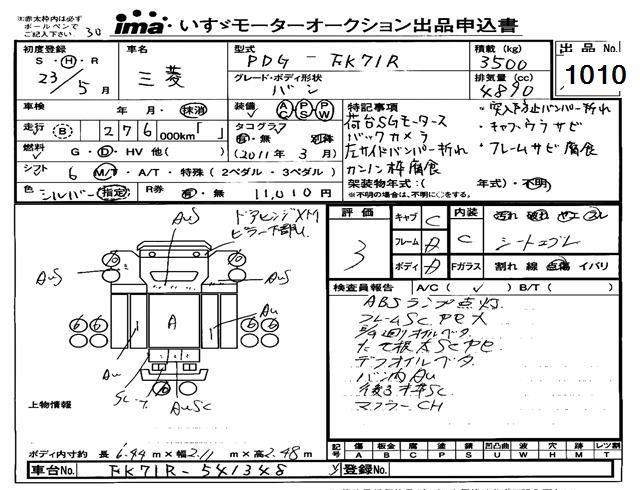 ※赤太枠内は必ず
ボールペンで
ご記入下さい
30
ima いすゞモーターオークション出品申込書
初度登録
S・H・R
23年 5月
車名
三菱
型式
PDG-FK71R
グレード・ボディ形状
バン
積載(kg)
3500
排気量(cc)
4890
出品No.
1010
車検 年・月・抹消
装備 AC PS PW
走行 B 276 000km「 」
タコグラフ
有・無
(2011年 3月)
燃料 G・D・HV 他( )
シフト 6 M/T・A/T・特殊(2ペダル・3ペダル)
色 シルバー 指定 R券 有・無 11,010円
特記事項
荷台SGモータース
バックカメラ
左サイドバンパー折れ
カンノン枠腐食
・突入防止バンパー折れ
・キャブウラサビ
・フレームサビ腐食
架装物年式:( 年式)・不明
※不明の場合は、不明に○をする。
AuS
ドアヒンジXM
ピラー下部
AuS
AuS
A
Au
AuSC
評価
3
キャブ C
フレーム D
ボディ D
内装 C
汚れ 破れ ヤニ コゲ
Fガラス 割れ 線 点傷 イバリ
検査員報告 A/C( ✓ ) B/T( )
ABSランプ点灯
フレームSC PE X
デフオイルベタ
バン内Au
マフラーCH
上物情報
ボディ内寸約 長 6.44m×幅 2.11m×高 2.48m
記号 傷 板金 腐 塗 錆 凹凸曲 波 穴 補 テスト レツ割
A B C P S U W H M T
車台No. FK71R-541348
登録No.